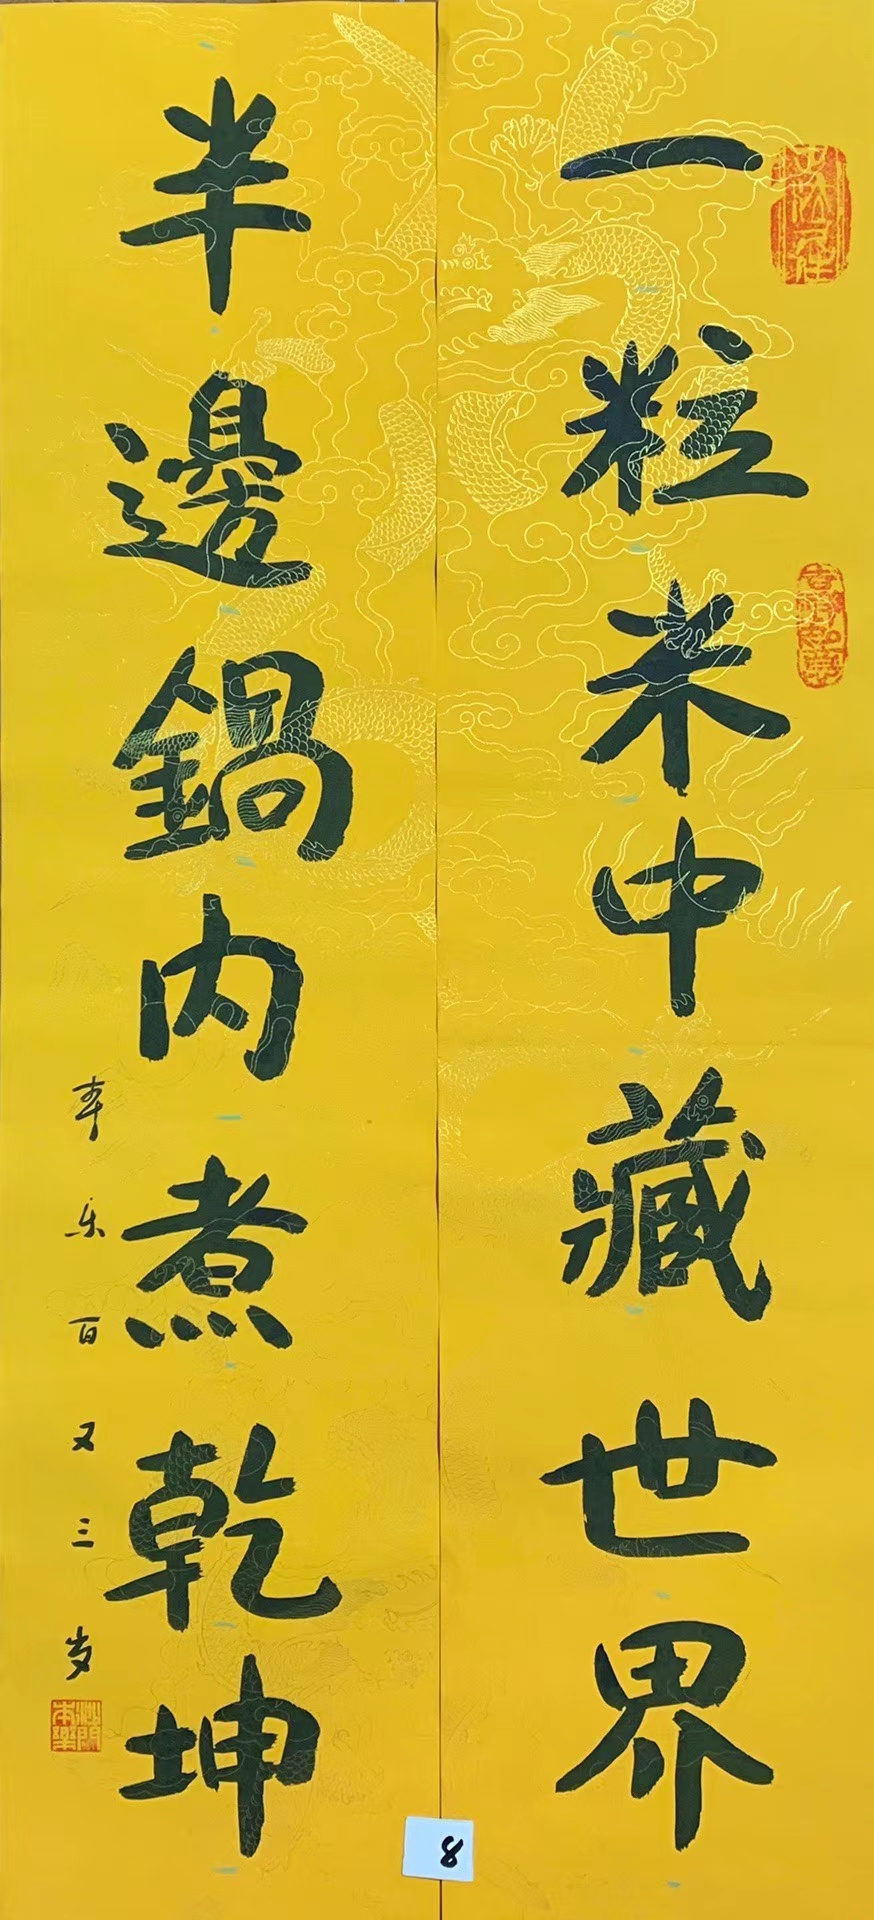 一粒米中藏世界
半邊鍋内煮乾坤
本乐百又三岁
沙門
本樂
8